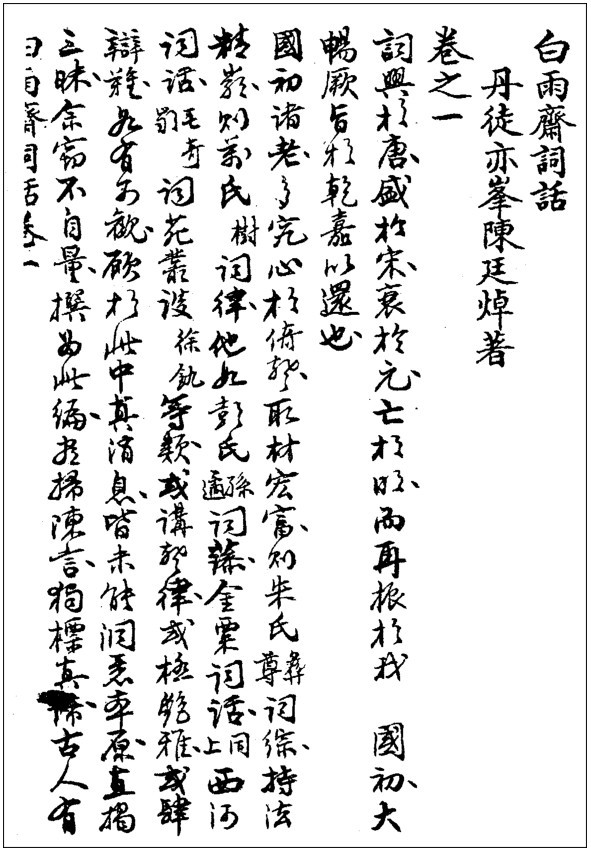 白雨齋詞話
丹徒亦峯陳廷焯著
卷之一
詞興於唐盛於宋衰於元亡於明而再振於我 國初大
暢厥旨於乾嘉以還也
國初諸老多究心於倚聲取材宏富則朱氏彝尊詞綜持法
精嚴則萬氏樹詞律他如彭氏孫遹詞藻金粟詞話同上西河
詞話毛奇齡詞苑叢談徐釚等類或講聲律或極艷雅或肆
辯難各有可觀顧於此中真消息皆未能洞悉本原直揭
三昧余竊不自量撰為此編盡掃陳言獨標真諦古人有
白雨齋詞話卷一